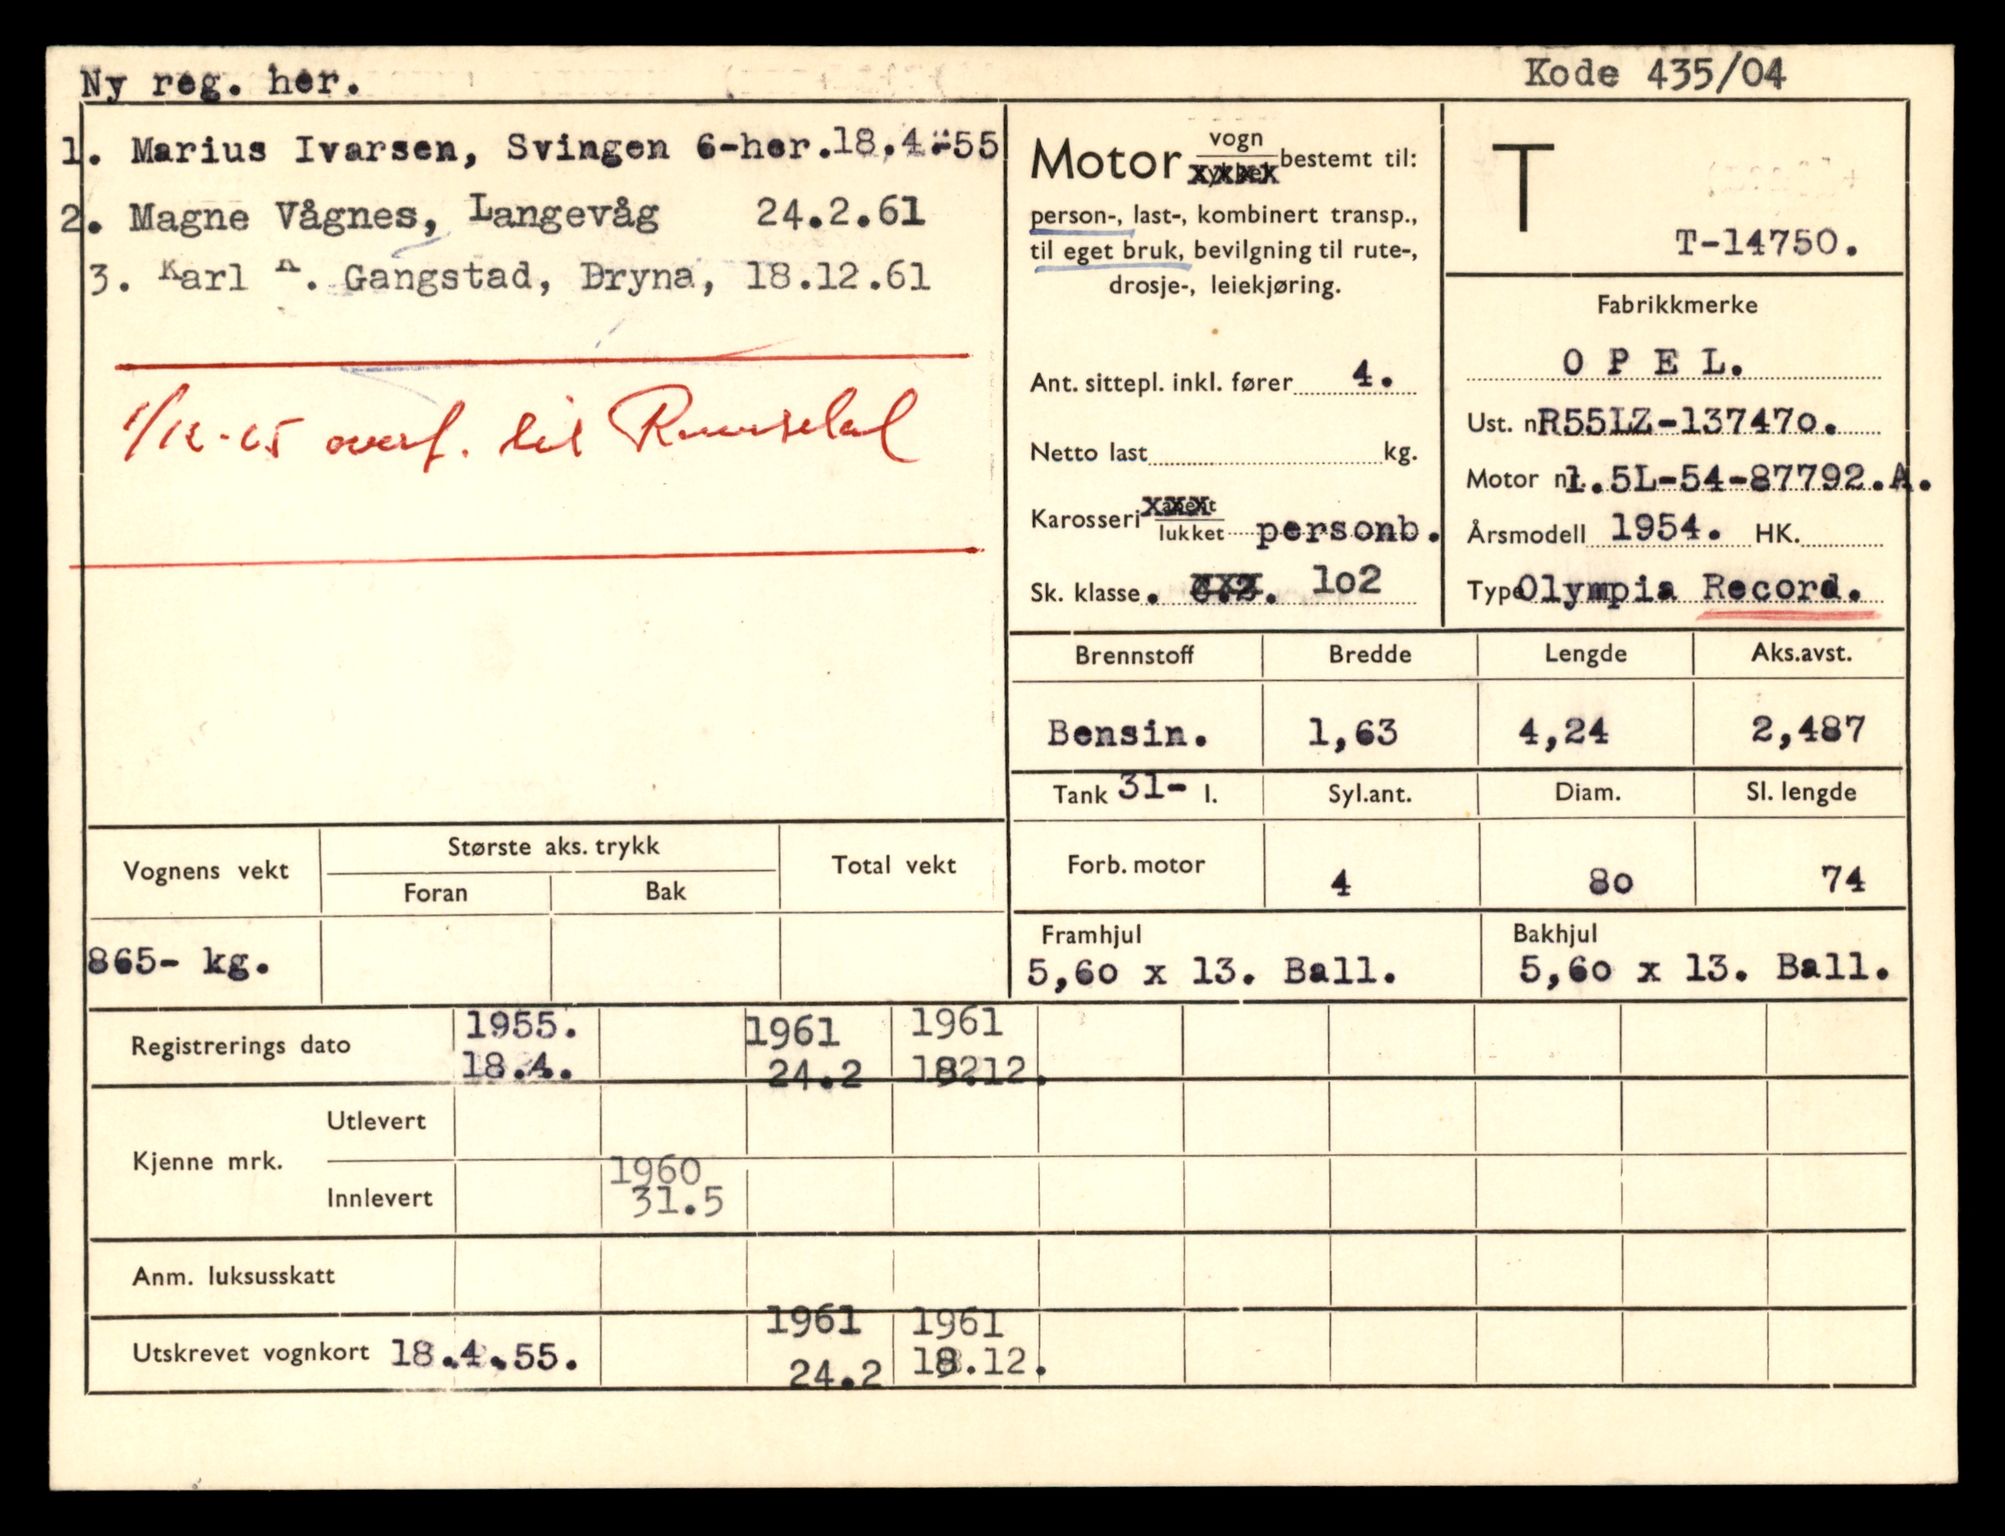 Ny reg. her.
Kode 435/04
1. Marius Ivarsen, Svingen 6-her.18.4.-55
2. Magne Vågnes, Langevåg 24.2.61
3. Karl K. Gangstad, Dryna, 18.12.61
1/12-65 overf. til Romsdal
Motor vogn bestemt til:
person-, last-, kombinert transp.,
til eget bruk, bevilgning til rute-,
drosje-, leiekjøring.
Ant. sittepl. inkl. fører 4.
Netto last kg.
Karosseri xxx lukket personb.
Sk. klasse. xxx. 1o2
T
T-14750.
Fabrikkmerke
O P E L.
Ust. nR55LZ-13747o.
Motor nr. 1.5L-54-87792.A.
Årsmodell 1954. HK.
Type Olympia Record.
Brennstoff Bredde Lengde Aks.avst.
Bensin. 1,63 4,24 2,487
Tank 31- l. Syl.ant. Diam. Sl. lengde
Forb. motor 4 8o 74
Framhjul Bakhjul
5,6o x 13. Ball. 5,6o x 13. Ball.
Vognens vekt Største aks. trykk Total vekt
Foran Bak
865- kg.
Registrerings dato 1955. 1961 1961
18.4. 24.2 18.12.
Kjenne mrk. Utlevert
Innlevert 1960
31.5
Anm. luksusskatt
Utskrevet vognkort 18.4.55. 1961 1961
24.2 18.12.